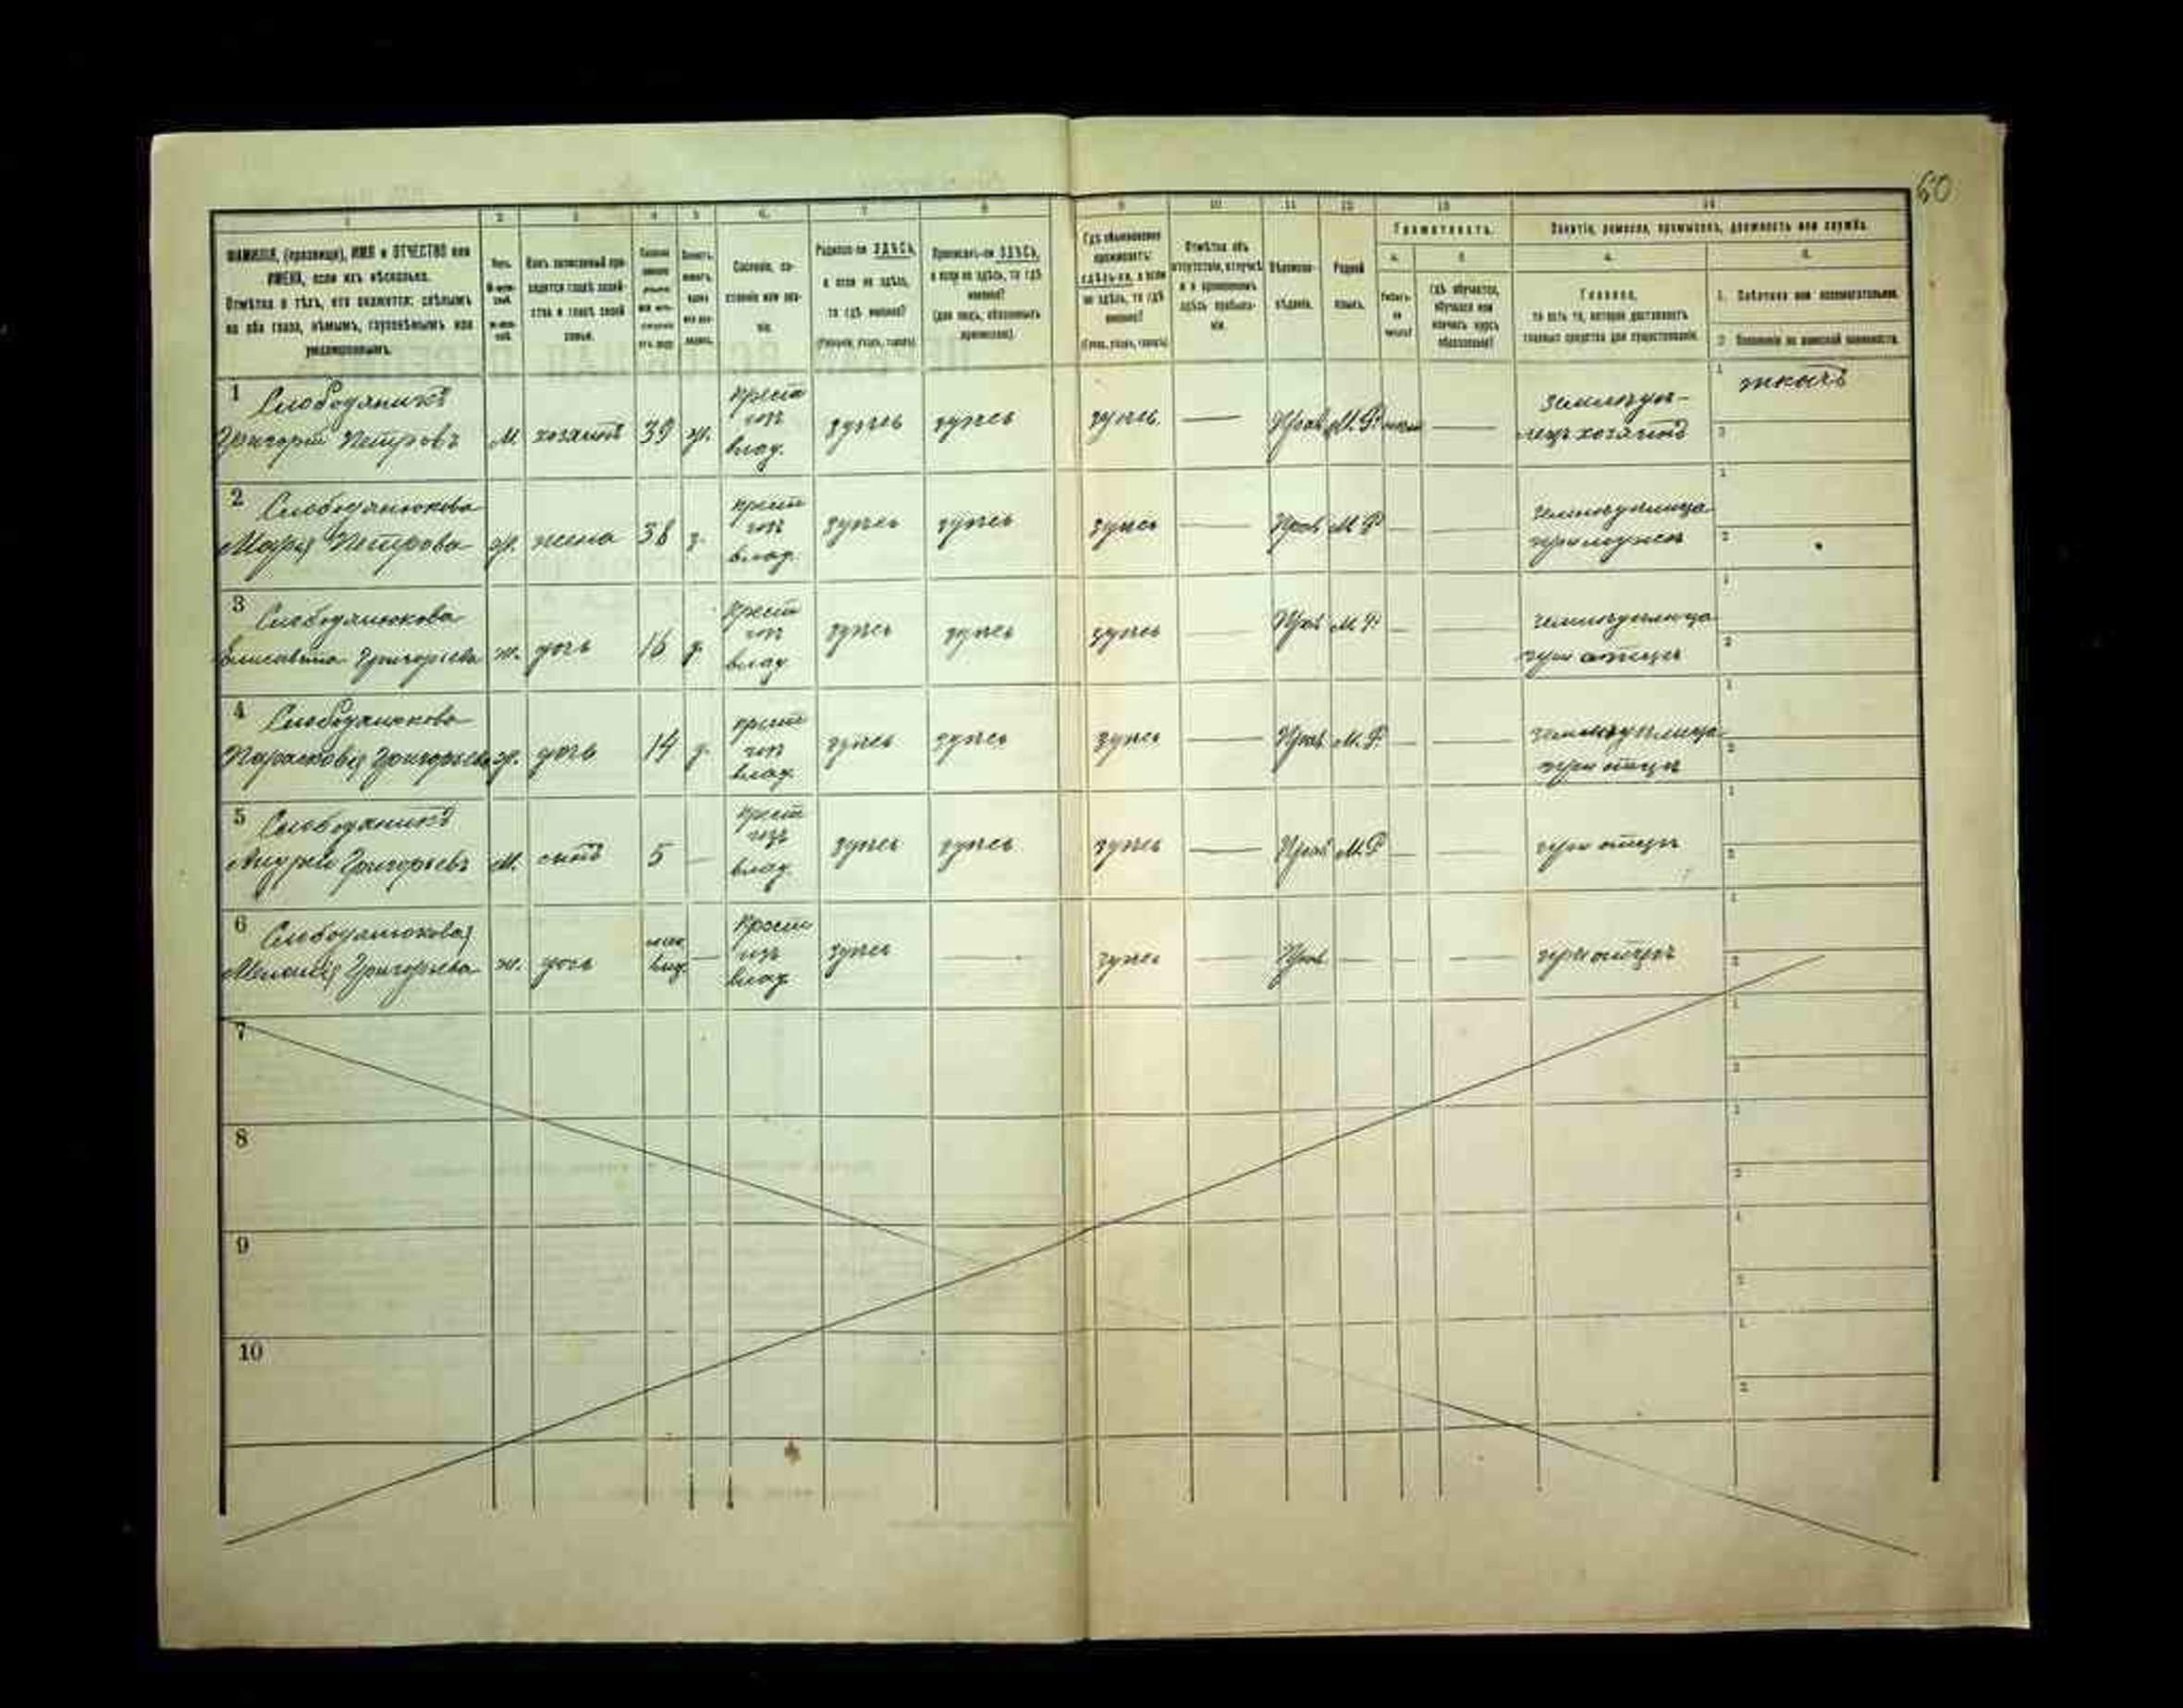 60
1 2 3 4 5 6. 7 8 9 10 11 12 13 14
ФАМИЛІЯ, (прозвище), ИМЯ и ОТЧЕСТВО или
ИМЕНА, если ихъ нѣсколько.
Отмѣтка о тѣхъ, кто окажется: слѣпымъ
на оба глаза, нѣмымъ, глухонѣмымъ или
умалишеннымъ.
Полъ.
Какъ записанный при-
ходится главѣ хозяй-
ства и главѣ своей
семьи.
Сословіе, со-
стояніе или зва-
ніе.
Родился-ли ЗДѢСЬ,
а если не здѣсь,
то гдѣ именно?
(Губернія, уѣздъ, городъ)
Приписанъ-ли ЗДѢСЬ,
а если не здѣсь, то гдѣ
именно?
(для лицъ, обязанныхъ
припискою).
Гдѣ обыкновенно
проживаетъ:
здѣсь-ли, а если
не здѣсь, то гдѣ
именно?
(Губер., уѣздъ, городъ)
Отмѣтка объ
отсутствіи, отлучкѣ
и о временномъ
здѣсь пребыва-
ніи.
Вѣроиспо-
вѣданіе.
Родной
языкъ.
Грамотность.
а. б
Умѣетъ-
ли
читать?
Гдѣ обучается,
обучался или
кончилъ курсъ
образованія?
Занятіе, ремесло, промыселъ, должность или служба.
а. б.
Главное,
то есть то, которое доставляетъ
главныя средства для существованія.
1. Побочное или вспомогательное.
2 Положеніе по воинской повинности.
1 Слободянюкъ
Григорій Петровъ М хозяинъ 39 ж. крест изъ влад. здѣсь здѣсь здѣсь. — Прав М.Р. — хозяинъ
1 ткачъ
2
2 Слободянюкова
Марія Петрова ж. жена 38 з. крест изъ влад. здѣсь здѣсь здѣсь — Прав М.Р — — земледѣлица
при мужѣ
1
2
3 Слободянюкова
Елисавета Григорьева ж. дочь 16 д. Крест изъ влад здѣсь здѣсь здѣсь — Прав М.Р. — — земледѣлица
при отцѣ
1
2
4 Слободянюкова
Парасковія Григорьева ж. дочь 14 д. крест изъ влад. здѣсь здѣсь здѣсь — Прав М.Р. — — земледѣлица
при отцѣ
1
2
5 Слободянюкъ
Андрей Григорьевъ М. сынъ 5 — крест изъ влад. здѣсь здѣсь здѣсь — Прав М.Р — — при отцѣ
1
2
6 Слободянюкова
Меланія Григорьева ж. дочь — Крест изъ влад здѣсь — здѣсь — Прав — — — при отцѣ
1
2
7
1
2
8
1
2
9
1
2
10
1
2